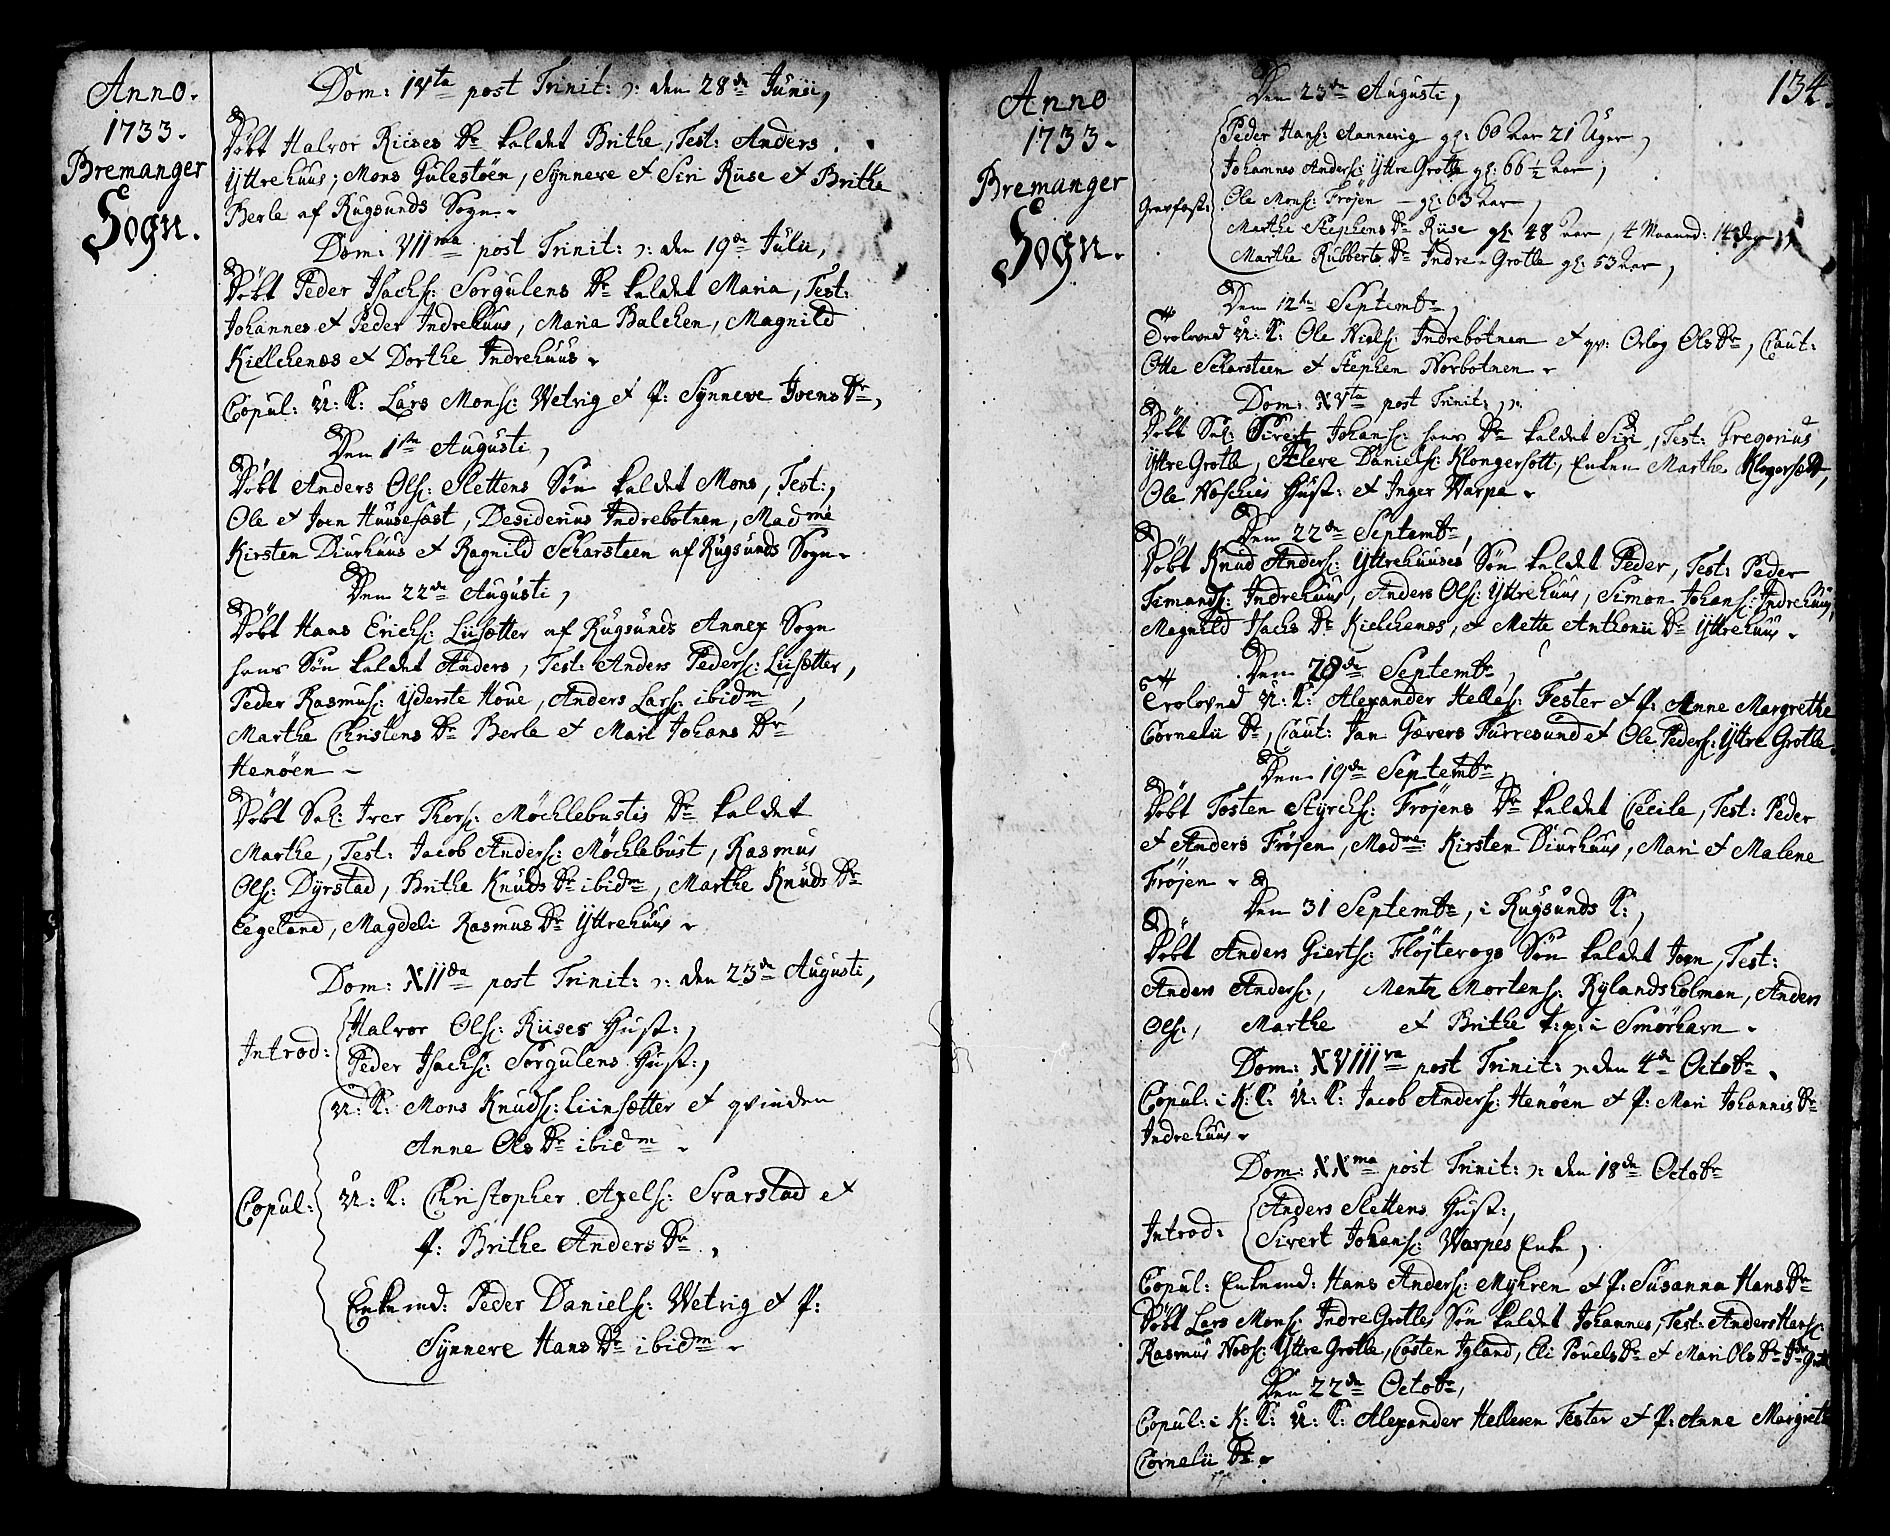 Anno.
1733.
Bremanger
Sogn.
Dom: IVta post Trinit: ɔ: den 28de Junii,
Døbt Halvor Riises Dr kaldet Brithe, Test: Anders
Yttrehuus; Mons Gulestöen, Synneve et Siri Riise et Brithe
Berle af Rugsunds Sogn.
Dom: VIIma post Trinit: ɔ: den 19de Julii,
Døbt Peder Isachs: Sorgulens Dr kaldet Maria, Test:
Johannes et Peder Indrehuus, Maria Balchen, Magnild
Kielchenæs et Dorthe Indrehuus.
Copul: U: K: Lars Mons: Wetvig et P: Synneve Joens Dr,
Den 1ste Augusti,
Døbt Anders Ols: Slettens Søn kaldet Mons, Test:,
Ole et Joen Huusefast, Desiderius Indrebotnen, Madme
Kirsten Diurhuus et Ragnild Scharsteen af Rugsunds Sogn.
Den 22de Augusti,
Døbt Hans Erichs: Liisætter af Rugsunds Annex Sogn
hans Søn kaldet Anders, Test: Anders Peders: Liisætter,
Peder Rasmus: Yderste Hove, Anders Lars: ibidm,
Marthe Christens Dr Berle et Mari Johans Dr
Henöen
Døbt Sal: Iver Thors: Möchlebustis Dr kaldet
Marthe, Test: Jacob Anders: Möchlebust, Rasmus
Ols: Dyrstad, Brithe Knuds Dr ibidm, Marthe Knuds Dr
Eegeland, Magdeli Rasmus Dr Yttrehuus.
Dom: XIIda post Trinit: ɔ: den 23de Augusti,
Introd:
Halvor Ols: Riises Hust:,
Peder Isachs: Sorgulens Hust:,
Copul:
U: K: Mons Knuds: Liinsætter et qvinden
Anne Ols Dr ibidm.
U: K: Christopher Axels: Svarstad et
P: Brithe Anders Dr,
Enkemd: Peder Daniels: Wetvig et P:
Synneve Hans Dr ibidm.
Anno
1733.
Bremanger
Sogn.
134.
Den 23de Augusti,
Gravfæst:
Peder Hans: Aannevig gl: 60 Aar 21 Uger,
Johannes Anders: Yttre Grotle gl: 66½ Aar,
Ole Mons: Fröjen gl: 63 Aar,
Marthe Stephens Dr Riise gl: 48 Aar, 4 Maaned: 14 dage
Marthe Rubberts Dr Indre Grotle gl: 53 Aar,
Den 12te Septembr,
Trolovad U: K: Ole Niels: Indrebotnen et qv: Orlog Ols Dr, Caut:
Otte Scharsteen et Stephen Norbotnen.
Dom: XVta post Trinit: ɔ:
Døbt Sal: Sivert Johans: hans Dr kaldet Siri, Test: Gregorius
Yttre Grotle, Helere Daniels: Klongersött, Enken Marthe Klongersött,
Ole Noschies Hust: et Inger Warpe.
Den 22de Septembr,
Døbt Knud Anders: Yttrehuuses Søn kaldet Peder, Test: Peder
Femands: Indrehuus, Anders Ols: Yttrehuus, Simon Johans: Indrehuus,
Magnild Isachs Dr Kielchenæs, et Mette Anthonii Dr Yttrehuus.
Den 28de Septembr,
Trolovad U: K: Alexander Helles: Fester et P: Anne Margrethe
Cornelii Dr, Caut: Jan Gævers Furresund et Ole Peders: Yttre Grotle.
Den 19de Septembr,
Døbt Tosten Styrchs: Fröjens Dr kaldet Cecile, Test: Peder
et Anders Fröjen, Madme Kirsten Diurhuus, Mari et Malene
Fröjen.
Den 31 Septembr, i Rugsunds K:,
Døbt Anders Gierts: Flöjterogs Søn kaldet Joen, Test:
Anders Anders:, Mentz Mortens: Rylandsholmen, Anders
Ols:, Marthe et Brithe t:p: i Smörhavn.
Dom: XVIIIva post Trinit: ɔ: den 4de Octobr.
Copul: i K: K: U: K: Jacob Anders: Henöen et P: Mari Johannis Dr
Indrehuus.
Dom: XXma post Trinit: ɔ: den 18de Octobr
Introd:
Anders Slettens Hust:,
Sivert Johans: Warpes Enke,
Copul: Enkemd: Hans Anders: Myhren et P: Susanna Hans Dr
Døbt Lars Mons: Indre Grotles Søn kaldet Johannes, Test: Anders Hans:
Rasmus Noes: Yttre Grotle, Costen Igland, Eli Povels Dr et Mari Ols Dr
Den 22de Octobr,
Copul: i K: K: U: K: Alexander Hellesen Fester et P: Anne Margrethe
Cornelii Dr.